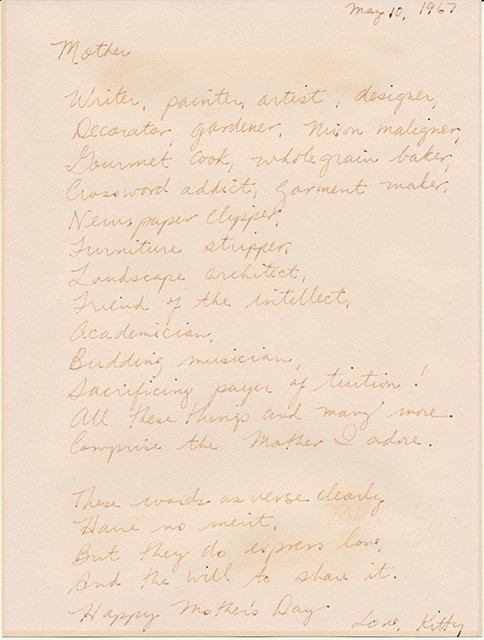 May 10, 1967
Mother
Writer, painter, artist, designer,
Decorator, gardener, Nixon maligner,
Gourmet cook, whole grain baker,
Crossword addict, garment maker,
Newspaper clipper,
Furniture stripper,
Landscape architect,
Friend of the intellect,
Academician,
Budding musician,
Sacrificing payer of tuition!
All these things and many more
Comprise the Mother I adore.
These words as verse clearly
Have no merit,
But they do express love,
And the will to share it.
Happy Mother's Day
Love, Kitty